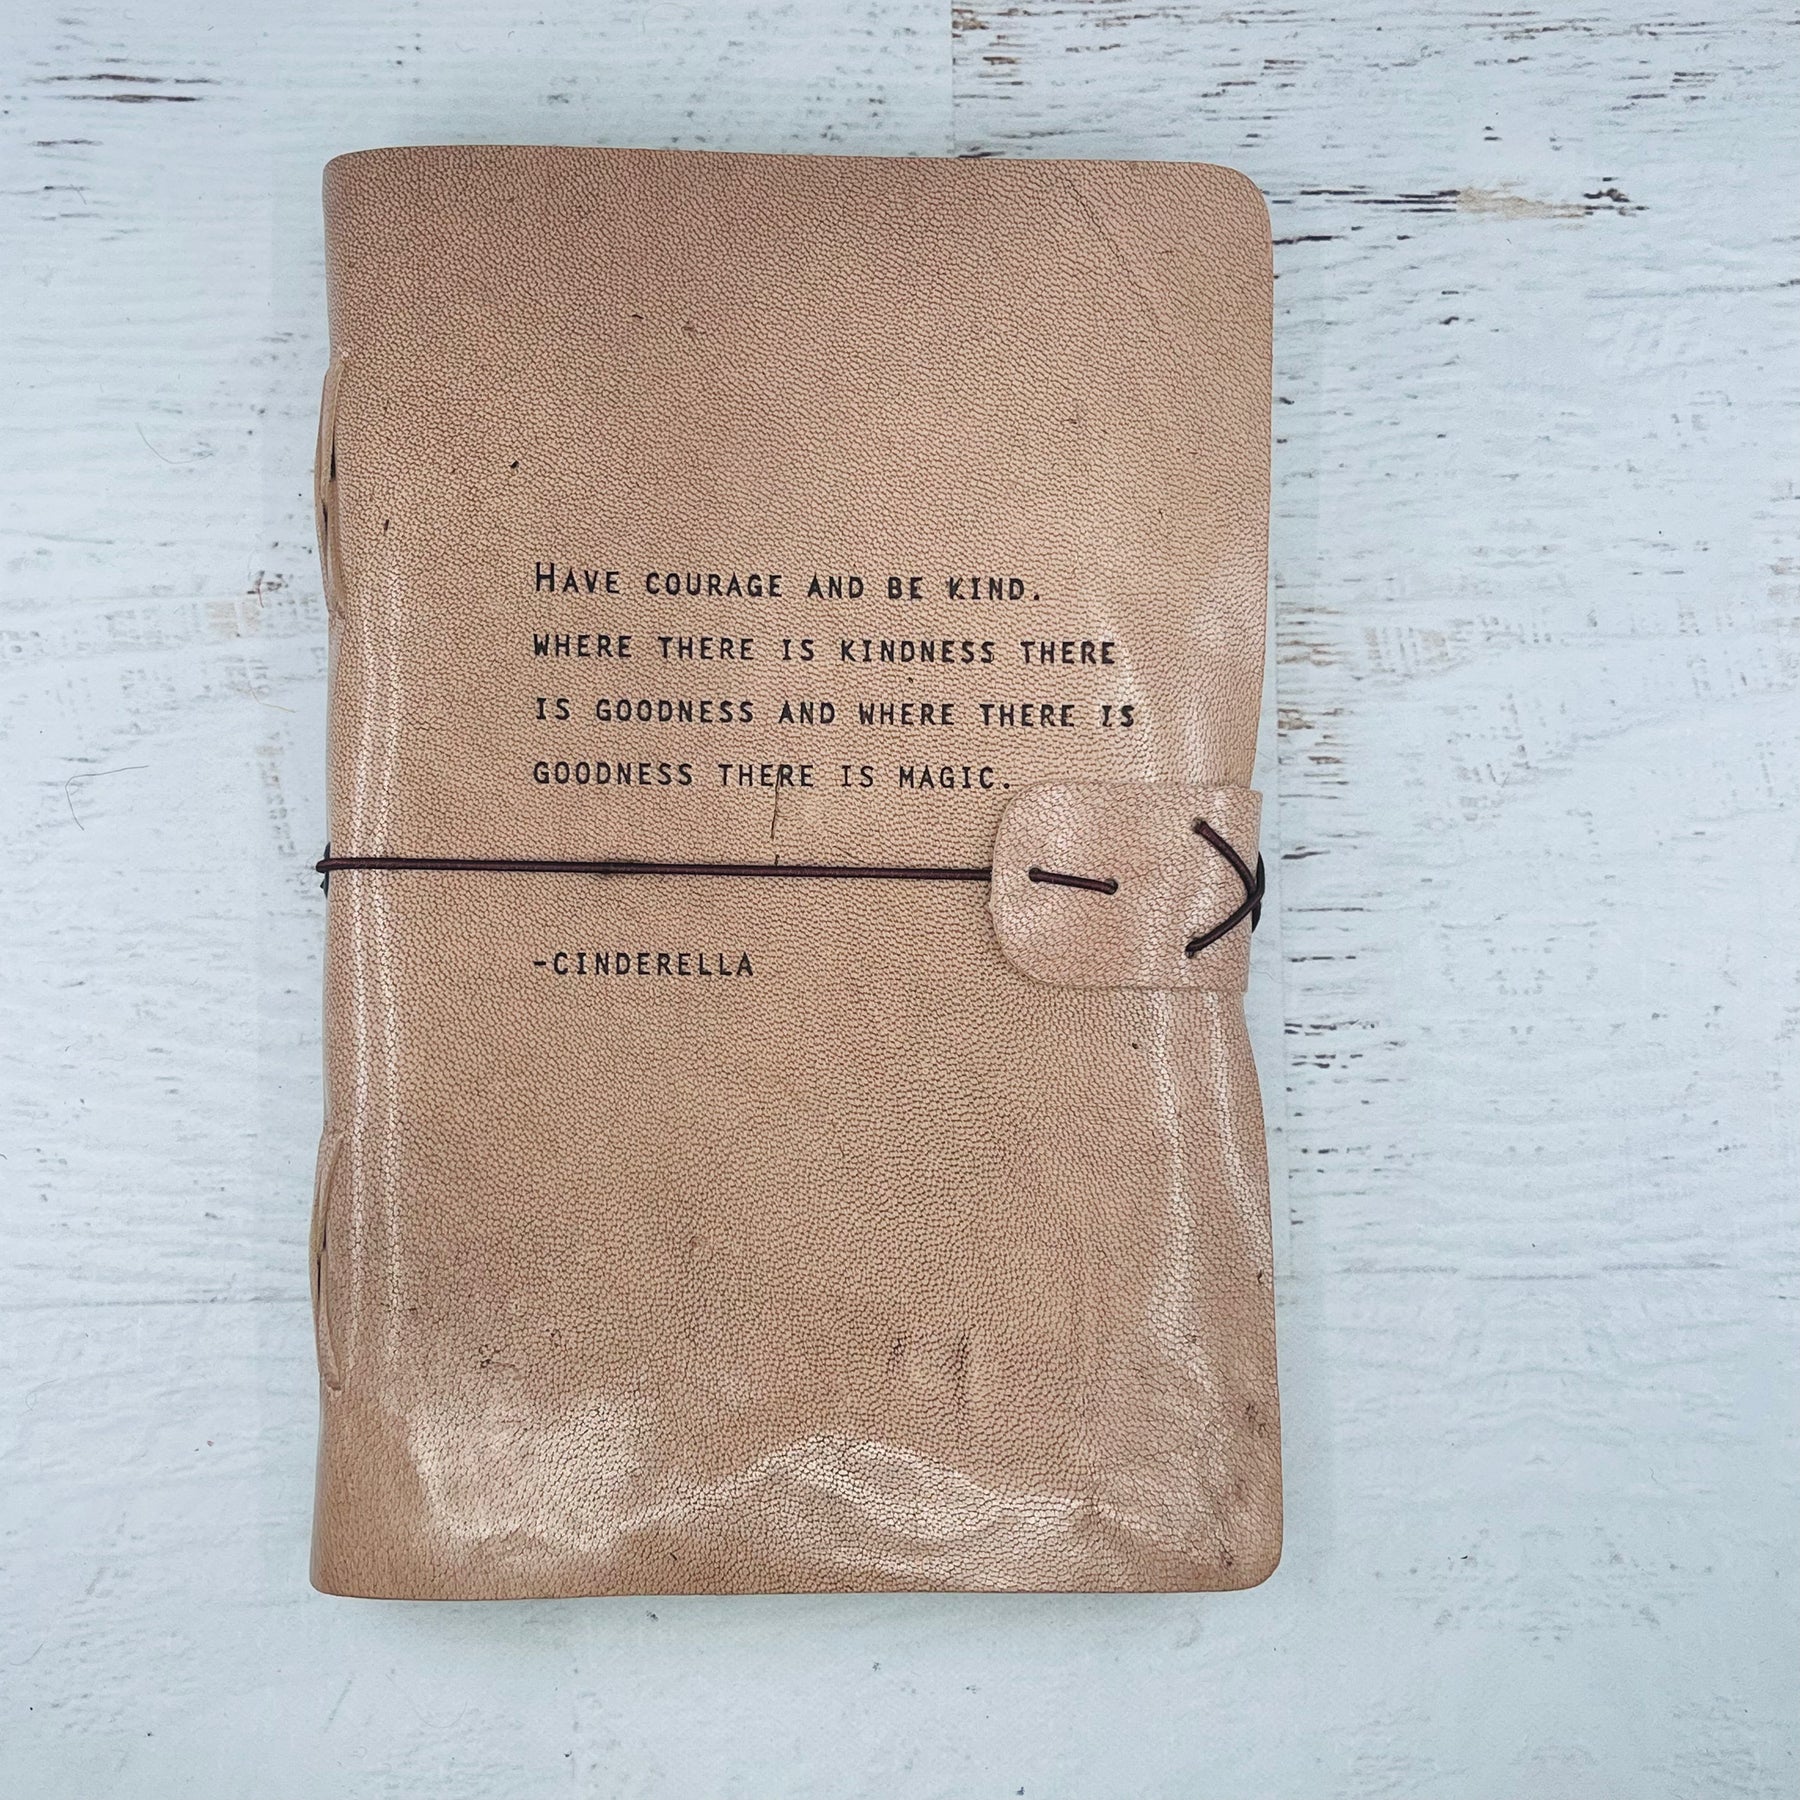 Have courage and be kind.
where there is kindness there
is goodness and where there is
goodness there is magic.
-Cinderella